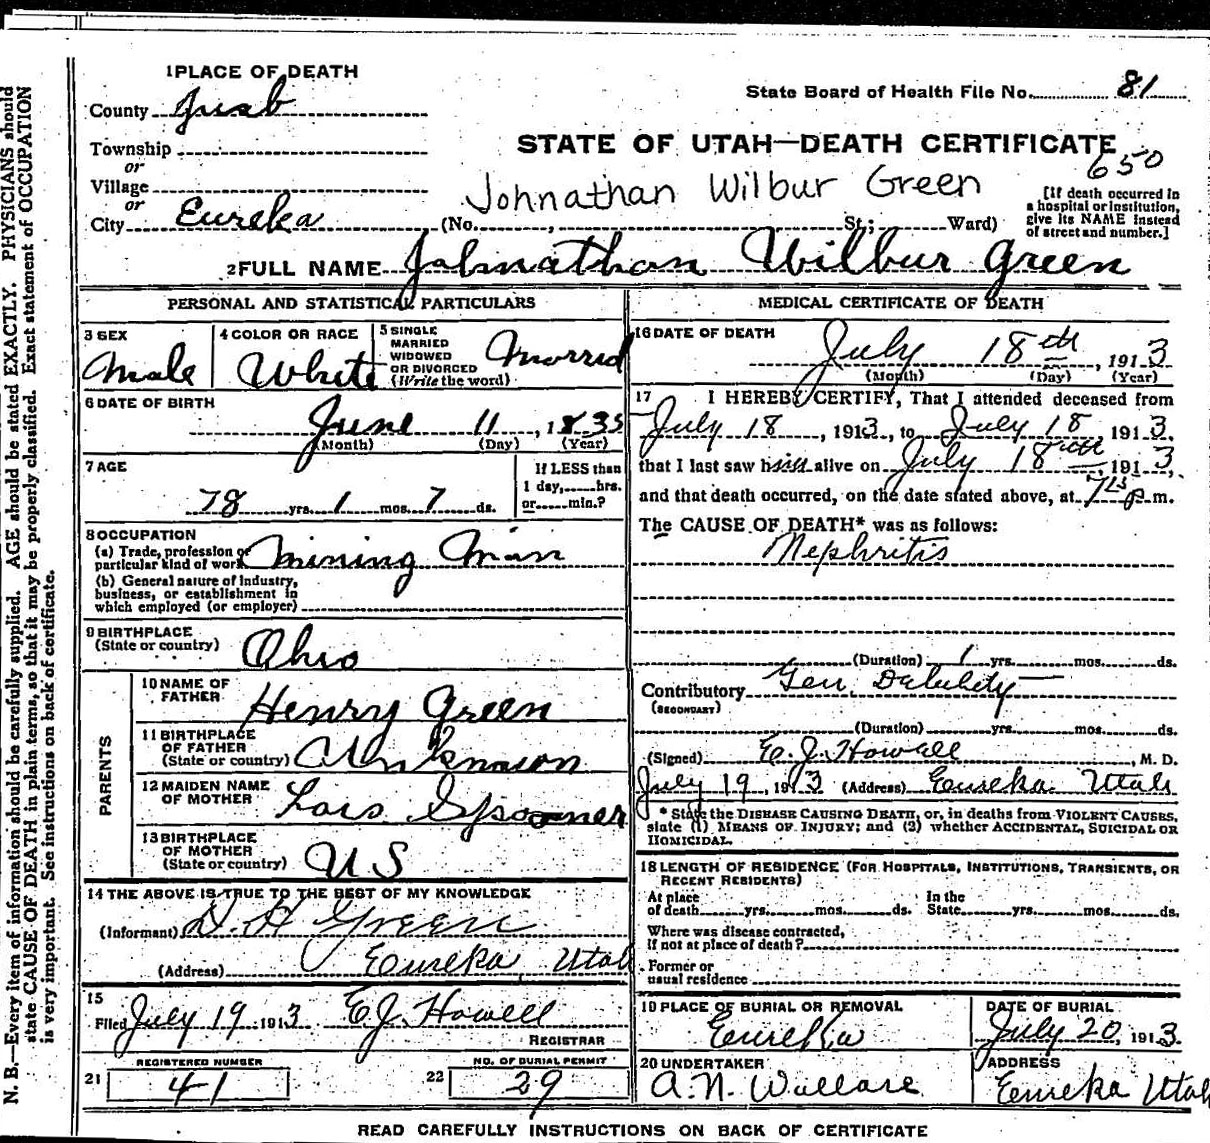 1 PLACE OF DEATH
County Juab
State Board of Health File No. 81
Township
or
STATE OF UTAH—DEATH CERTIFICATE
650
Village
or
Johnathan Wilbur Green
City Eureka (No. , St.; Ward)
[If death occurred in
a hospital or institution,
give its NAME instead
of street and number.]
2 FULL NAME Johnathan Wilbur Green
PERSONAL AND STATISTICAL PARTICULARS
3 SEX
Male
4 COLOR OR RACE
White
5 SINGLE
MARRIED
WIDOWED
OR DIVORCED
(Write the word)
Married
6 DATE OF BIRTH
June 11, 1835
(Month) (Day) (Year)
7 AGE
78 yrs. 1 mos. 7 ds.
If LESS than
1 day, hrs.
or min.?
8 OCCUPATION
(a) Trade, profession or
particular kind of work Mining Man
(b) General nature of industry,
business, or establishment in
which employed (or employer)
9 BIRTHPLACE
(State or country) Ohio
PARENTS
10 NAME OF
FATHER Henry Green
11 BIRTHPLACE
OF FATHER
(State or country) Unknown
12 MAIDEN NAME
OF MOTHER Lois Spooner
13 BIRTHPLACE
OF MOTHER
(State or country) US
14 THE ABOVE IS TRUE TO THE BEST OF MY KNOWLEDGE
(Informant) D. H Green
(Address) Eureka, Utah
15
Filed July 19 1913 E.J. Howell
REGISTRAR
REGISTERED NUMBER
21 41
NO. OF BURIAL PERMIT
22 29
MEDICAL CERTIFICATE OF DEATH
16 DATE OF DEATH
July 18th, 1913
(Month) (Day) (Year)
17 I HEREBY CERTIFY, That I attended deceased from
July 18, 1913, to July 18 1913,
that I last saw him alive on July 18th, 1913,
and that death occurred, on the date stated above, at 7 15 p.m.
The CAUSE OF DEATH* was as follows:
Nephritis
(Duration) 1 yrs. mos. ds.
Contributory Gen. Debility
(SECONDARY)
(Duration) yrs. mos. ds.
(Signed) E. J. Howell, M. D.
July 19, 1913 (Address) Eureka Utah
* State the DISEASE CAUSING DEATH, or, in deaths from VIOLENT CAUSES,
state (1) MEANS OF INJURY; and (2) whether ACCIDENTAL, SUICIDAL OR
HOMICIDAL.
18 LENGTH OF RESIDENCE (FOR HOSPITALS, INSTITUTIONS, TRANSIENTS, OR
RECENT RESIDENTS)
At place
of death yrs. mos. ds.
In the
State yrs. mos. ds.
Where was disease contracted,
If not at place of death?
Former or
usual residence
19 PLACE OF BURIAL OR REMOVAL
Eureka
DATE OF BURIAL
July 20, 1913
20 UNDERTAKER
A. N. Wallace
ADDRESS
Eureka Utah
READ CAREFULLY INSTRUCTIONS ON BACK OF CERTIFICATE
N. B.—Every item of information should be carefully supplied. AGE should be stated EXACTLY. PHYSICIANS should
state CAUSE OF DEATH in plain terms, so that it may be properly classified. Exact statement of OCCUPATION
is very important. See instructions on back of certificate.